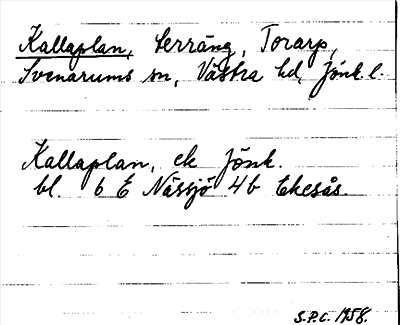 Kallaplan, terräng, Torarp,
Svenarums sn, Västra hd, Jönk l.
Kallaplan, ek Jönk.
bl. 6 E Nässjö 4b Ekesås
S.P.C. 1958.